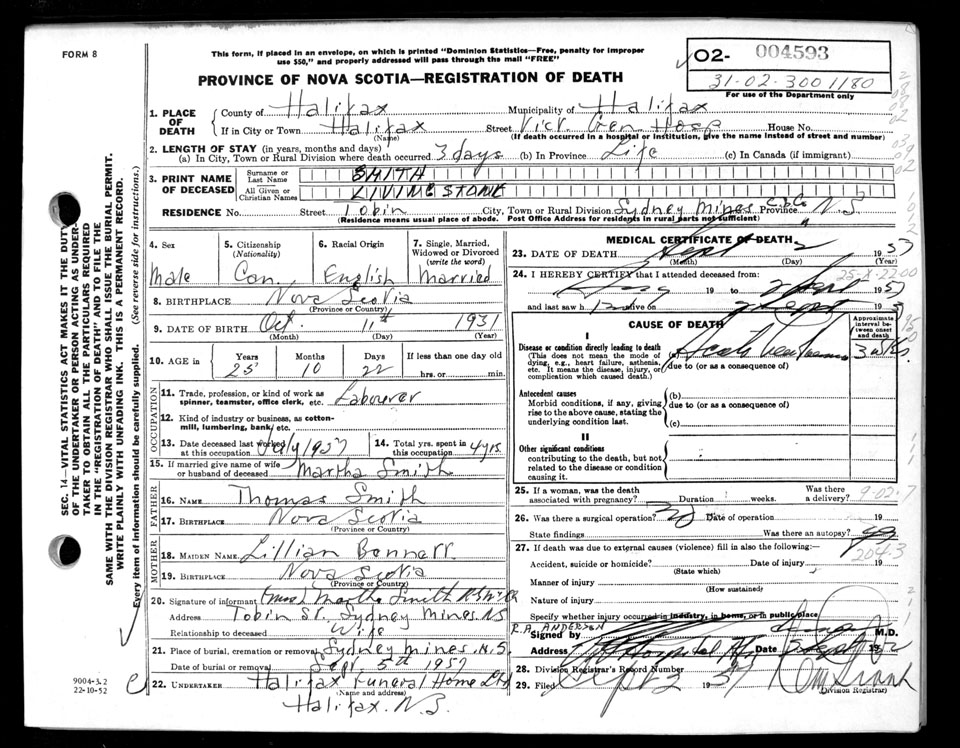 FORM 8
This form, if placed in an envelope, on which is printed "Dominion Statistics—Free, penalty for improper
use $50," and properly addressed will pass through the mail "FREE"
O2- 004593
31-02-300 1180
For use of the Department only
PROVINCE OF NOVA SCOTIA—REGISTRATION OF DEATH
1. PLACE OF DEATH
County of Halifax Municipality of Halifax
If in City or Town Halifax (Name) Street Vict Gen Hosp House No.
(If death occurred in a hospital or institution, give the name instead of street and number)
2. LENGTH OF STAY (in years, months and days)
(a) In City, Town or Rural Division where death occurred 3 days (b) In Province Life (c) In Canada (if immigrant)
3. PRINT NAME OF DECEASED
Surname or Last Name SMITH
All Given or Christian Names LIVINGSTONE
RESIDENCE No. Street Tobin City, Town or Rural Division Sydney Mines C.B.Co Province N.S.
(Residence means usual place of abode. Post Office Address for residents in rural parts not sufficient)
4. Sex Male
5. Citizenship (Nationality) Can.
6. Racial Origin English
7. Single, Married, Widowed or Divorced (write the word) Married
8. BIRTHPLACE Nova Scotia
(Province or Country)
9. DATE OF BIRTH Oct. 11th 1931
(Month) (Day) (Year)
10. AGE in Years 25 Months 10 Days 22 If less than one day old hrs. or min.
OCCUPATION
11. Trade, profession, or kind of work as spinner, teamster, office clerk, etc. Labourer
12. Kind of industry or business, as cotton-mill, lumbering, bank, etc.
13. Date deceased last worked at this occupation July 1957
14. Total yrs. spent in this occupation 4 yrs.
15. If married give name of wife or husband of deceased Martha Smith
FATHER
16. NAME Thomas Smith
17. BIRTHPLACE Nova Scotia
(Province or Country)
MOTHER
18. MAIDEN NAME Lillian Bennett
19. BIRTHPLACE Nova Scotia
(Province or Country)
20. Signature of informant (Mrs) Martha Smith
Address Tobin St. Sydney Mines. N.S
Relationship to deceased Wife
21. Place of burial, cremation or removal Sydney Mines. N.S.
Date of burial or removal Sept. 5th 1957
22. UNDERTAKER Halifax Funeral Home Ltd
(Name and address)
Halifax. N.S.
MEDICAL CERTIFICATE OF DEATH
23. DATE OF DEATH Sept 2 1957
(Month) (Day) (Year)
24. I HEREBY CERTIFY that I attended deceased from:
Aug 19 to 2 Sept 1957
25-X-22-00
and last saw h alive on 2 Sept 19
CAUSE OF DEATH
Approximate interval between onset and death
I
Disease or condition directly leading to death
(This does not mean the mode of dying, e.g., heart failure, asthenia, etc. It means the disease, injury, or complication which caused death.)
(a) Acute 3 wks.
due to (or as a consequence of)
Antecedent causes
Morbid conditions, if any, giving rise to the above cause, stating the underlying condition last.
(b)
due to (or as a consequence of)
(c)
II
Other significant conditions
contributing to the death, but not related to the disease or condition causing it.
25. If a woman, was the death associated with pregnancy? Duration weeks. Was there a delivery?
9-02-7
26. Was there a surgical operation? Date of operation 19
State findings Was there an autopsy?
27. If death was due to external causes (violence) fill in also the following:—
2043
Accident, suicide or homicide? Date of injury 19
(State which)
Manner of injury
(How sustained)
Nature of injury
Specify whether injury occurred in industry, in home, or in public place
R.A. ANDERSON
Signed by M.D.
Address Hospital Date Sept 19
28. Division Registrar's Record Number
29. Filed Sept 3 1957
Division Registrar
SEC. 14—VITAL STATISTICS ACT MAKES IT THE DUTY
OF THE UNDERTAKER OR PERSON ACTING AS UNDER-
TAKER TO OBTAIN ALL THE PARTICULARS REQUIRED
IN THE "REGISTRATION OF DEATH" AND TO FILE THE
SAME WITH THE DIVISION REGISTRAR WHO SHALL ISSUE THE BURIAL PERMIT.
WRITE PLAINLY WITH UNFADING INK. THIS IS A PERMANENT RECORD.
Every item of information should be carefully supplied. (See reverse side for instructions.)
9004-3.2
22-10-52